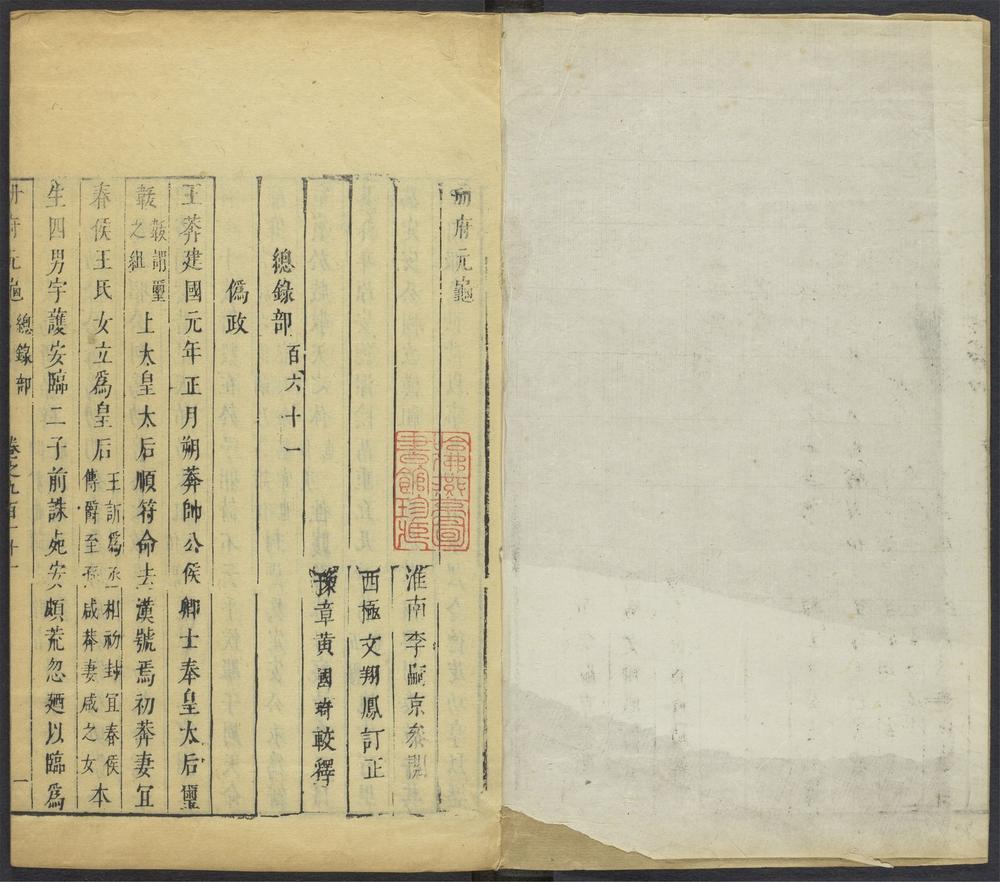 冊府元龜
淮南李嗣京參閱
西極文翔鳳訂正
豫章黃國琦較釋
總錄部百六十一
僞政
王莽建國元年正月朔莽帥公侯卿士奉皇太后璽
韍韍謂璽之組上太皇太后順符命去漢號焉初莽妻宜
春侯王氏女立爲皇后王訢爲丞相初封宜春侯傳爵至孫咸莽妻咸之女本
生四男宇護安臨二子前誅死安頗荒忽廼以臨爲
冊府元龜總錄部卷之九百一十一 一
哈佛燕京圖書館珍藏